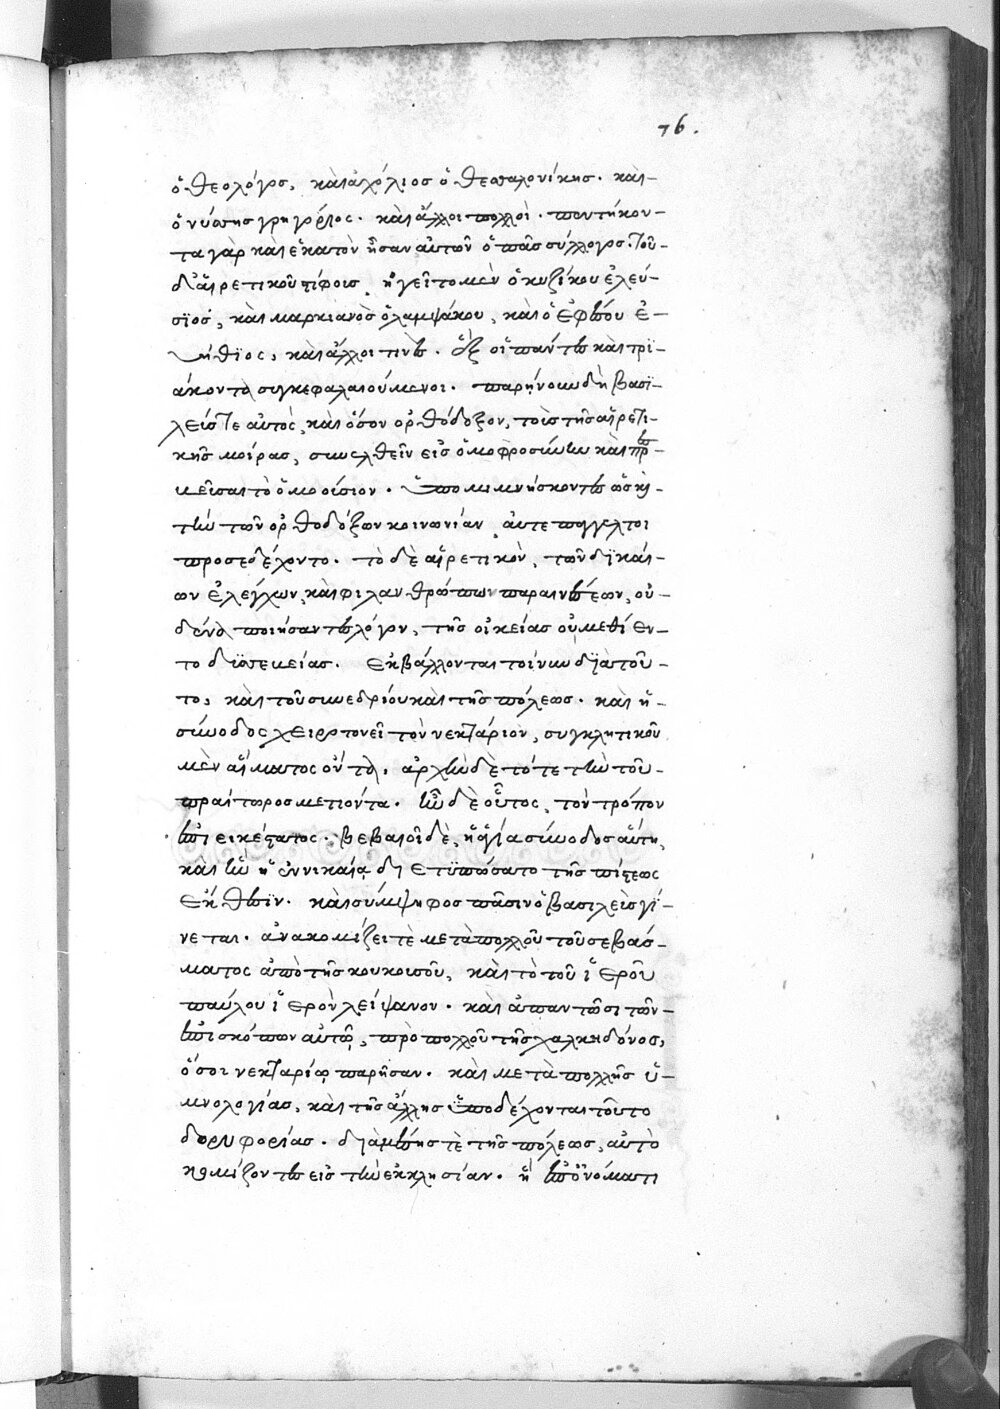 76.
ὁ θεολόγος, καὶ ἀχόλιος ὁ θεσσαλονίκης. καὶ
ὁ νύσσης γρηγόριος. καὶ ἄλλοι πολλοὶ. πεντήκον-
τα γὰρ καὶ ἑκατὸν ἦσαν αὐτῶν ὁ πᾶς σύλλογος. τοῦ-
δ' αἱρετικοῦ στίφους, ἡγεῖτο μὲν ὁ κυζίκου ἐλεύ-
σϊος, καὶ μαρκιανὸς ὁ λαμψάκου, καὶ ὁ ἐφέσου ἐ-
υήθϊος, καὶ ἄλλοι τινὲς. ἐξ οἱ πάντες καὶ τρϊ-
άκοντα συγκεφαλαιούμενοι. παρήνουν δὴ βασϊ-
λεύς τε αὐτὸς, καὶ ὅσον ὀρθόδοξον, τοῖς τῆς αἱρετι-
κῆς μοίρας, συνελθεῖν εἰς ὁμοφροσύνην καὶ πρεσ-
κεῖσαι τὸ ὁμοούσιον. ὑπομιμνήσκοντες ὡς καὶ
τὴν τῶν ὀρθοδόξων κοινωνίαν, αὐτεπάγγελτοι
προσεδέχοντο. τὸ δὲ αἱρετικὸν, τῶν δϊκαί-
ων ἐλέγχων, καὶ φιλανθρώπων παραινέσεων, οὐ-
δένα ποιήσαντες λόγον, τῆς οἰκείας οὐ μεθίεν-
το δϋσσεβείας. ἐκβάλλονται τοίνυν δϊὰ τοῦ-
το, καὶ τοῦ συνεδρίου καὶ τῆς πόλεως. καὶ ἡ-
σύνοδος χειροτονεῖ τὸν νεκτάριον, συγκλητικοῦ
μὲν αἵματος ὄντα, ἀρχὴν δὲ τότε τὴν τοῦ-
πραίτωρος μετιόντα. ἦν δὲ οὗτος, τὸν τρόπον
ἐπιεικέστατος. βεβαιοῖ δὲ, ἡ ἁγία σύνοδος αὕτη,
καὶ ἣν ἡ ἐν νικαίᾳ διετϋπώσατο τῆς πίστεως
ἔκθεσϊν. καὶ σύμψηφος πᾶσιν ὁ βασιλεὺς γί-
νεται. ἀνακομίζει τὲ μετὰ πολλοῦ τοῦ σεβάσ-
ματος ἀπὸ τῆς κουκουσοῦ, καὶ τὸ τοῦ ἱεροῦ
παύλου ἱερὸν λείψανον. καὶ ἀπαντῶσι τῶν-
ἐπισκόπων αὐτῷ, πρὸ πολλοῦ τῆς χαλκηδόνος,
ὅσοι νεκταρίῳ παρῆσαν. καὶ μετὰ πολλῆς ὑ-
μνολογίας, καὶ τῆς ἄλλης ὑποδέχονται τοῦτο
δορυφορίας. διὰ μέσης τὲ τῆς πόλεως, αὐτὸ
κομίζοντες εἰς τὴν ἐκκλησίαν. ἣ ἐπ' ὀνόματι